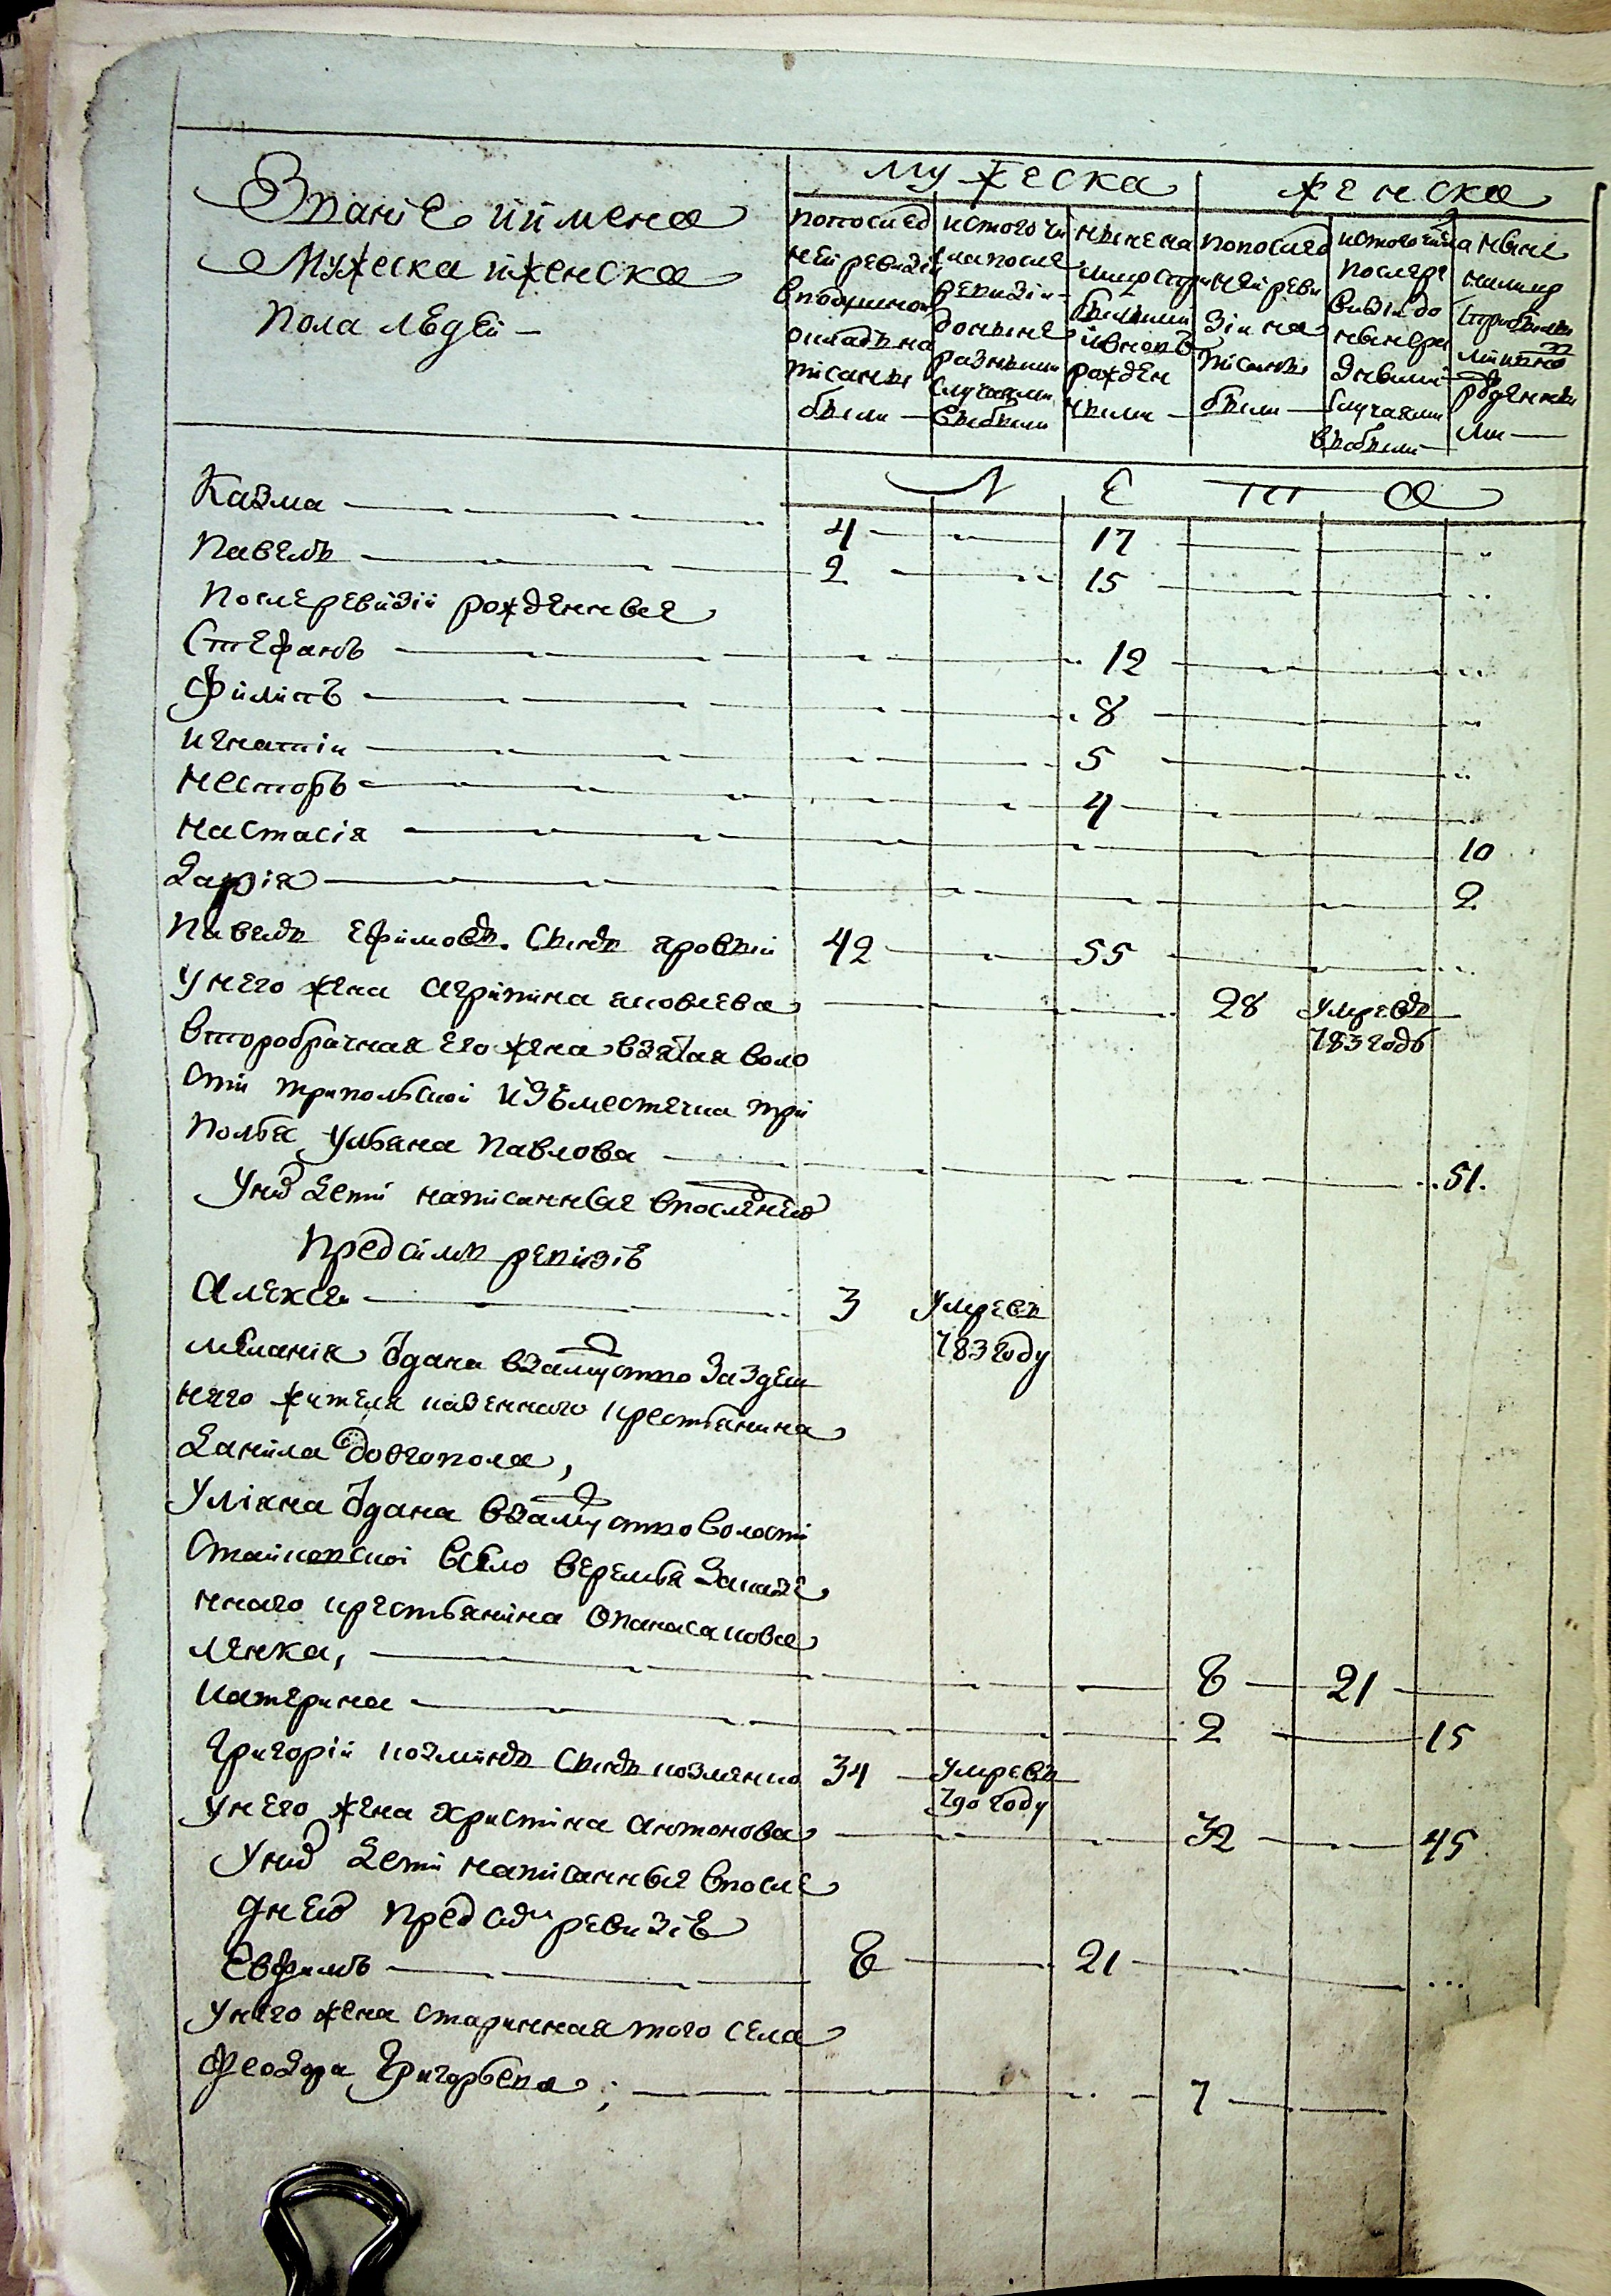 мужеска женска
Званіе иимена
Мужеска иженска
Пола людеи —
попослед
неи ревизіи
вподушнои
окладъ на
писаны
были —
истого чи
сла после
ревизіи
доныне
разными
случаями
выбыли
ныне на
лицо
были
ивновь
рожден
ными —
попослед
неи реви
зіи на
писаны
были —
истого
после ре
визіи до
ныне ра
зными
случаями
выбыли —
а ныне
налицо
рожденны
ми —
Л Е Т А
Казма — 4 — 17 —
Павелъ — 2 — 15 —
После ревизіи рожденные
Стефанъ — 12 —
Филипъ — 8 —
игнатіи — 5 —
несторъ — 4 —
настасія — 10
Дарія — 2
Павелъ Ефимовъ. Сынъ яровыи 42 — 55 —
у него жена агрипина яковлева — 28 умре въ
783 годѣ
второбрачная его жена взятая воло
сти трипольскои изъместечка три
полья ульяна павлова — 51.
Унихъ дети написанные впоследнеи
предсимъ ревизіе
алексеи — 3 умре въ
783 году
меланія одана взамужство за здеш
няго жителя казенного крестьянина
Данила довгопола,
уліяна одана взамужство волости
стаиковскои всело веремья за казе
нного крестьянина опанаса кова
ленка, — 8 — 21 —
катерина — 2 — 15
григоріи козминъ сынъ козленко 34 — умре въ
790 году
у него жена христина антонова — 32 — 45
Унихъ дети написанные впосле
днеи предсим ревизіе
евфимъ — 8 — 21 —
у него жена старинная того села
феодора григорьева; — 7 —